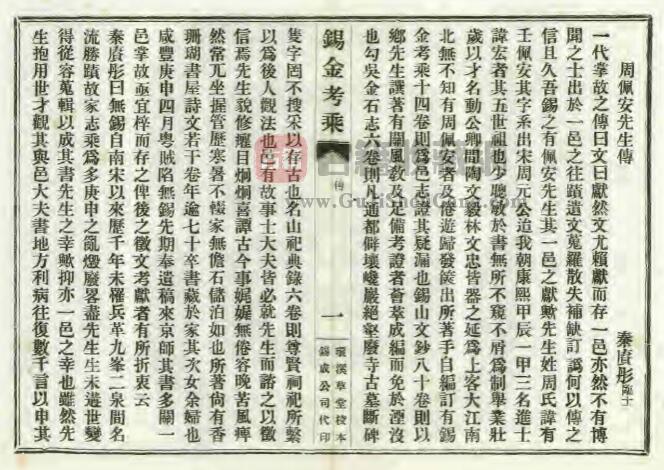 周佩安先生傳
秦賡彤 臨士
一代掌故之傳曰文曰獻然文尤賴獻而存一邑亦然不有博
聞之士出於一邑之往蹟遺文蒐羅散失補缺訂譌何以傳之
信且久吾錫之有佩安先生其一邑之獻歟先生姓周氏諱有
壬佩安其字系出宋周元公迨我朝康熙甲辰一甲三名進士
諱宏者其五世祖也少聰敏於書無所不窺不屑為制舉業壯
歲以才名動公卿間陶文毅林文忠皆器之延為上客大江南
北無不知有周佩安者及倦遊歸發篋出所著手自編訂有錫
金考乘十四卷則為邑志證其疑漏也錫山文鈔八十卷則以
鄉先生譔著有關風教及足備考證者會萃成編而免於湮沒
也勾吳金石志六卷則凡通都僻壤巉巖絕壑廢寺古墓斷碑
錫金考乘
傳
一
環溪草堂校本
錫成公司代印
隻字罔不搜采以存古也名山祀典錄六卷則尊賢祠祀所繫
以為後人觀法也邑有故事士大夫皆必就先生而諮之以徵
信焉先生貌修癯目炯炯喜譚古今事娓娓無倦容晚苦風痺
然常兀坐握管歷寒暑不懈家無儋石儲泊如也所著尚有香
珊瑚書屋詩文若干卷年逾七十卒書藏於家其次女余婦也
咸豐庚申四月粵賊陷無錫先期奉遺稿來京師其書多關一
邑掌故亟宜梓而存之俾後之徵文考獻者有所折衷云
秦賡彤曰無錫自南宋以來歷千年未罹兵革九峯二泉間名
流勝蹟故家志乘為多庚申之亂燬廢畧盡先生生未遘世變
得從容蒐輯以成其書先生之幸歟抑亦一邑之幸也雖然先
生抱用世才觀其與邑大夫書地方利病往復數千言以申其
www.GuJiShuCang.com